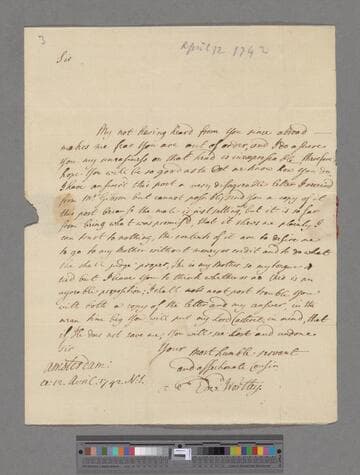 3
April 12 1742
Sir
My not having heard from You since abroad
makes me fear You are out of order, and I do assure
you my uneasiness on that head is inexpressible, therefore
hope You will be so good as to let me know how you do,
I have answer'd this post a very disagreeable letter I received
from Mr Gibson but cannot possibly send You a copy of it
this post because to the male is just setting, but it is so far
from being what was promis'd, that it shews me plainly I
can trust to nothing, the contents of it are to desire me
to go to my Mother without money or credit and to do what
she shall judge proper, she is my Mother so my tongue is
tied but I leave You to think whether or no this is an
agreable proposition, I shall next post trouble you
with both a copy of the letter and my answer, in the
mean time beg You will put my Lord Carteret in mind, that
if He does not save me, You will see Lost and undone
Sir
Your most humble servant
and affectionate Cousin
Amsterdam:
12 Avril. 1742. N.S.
Edw:d Wortley